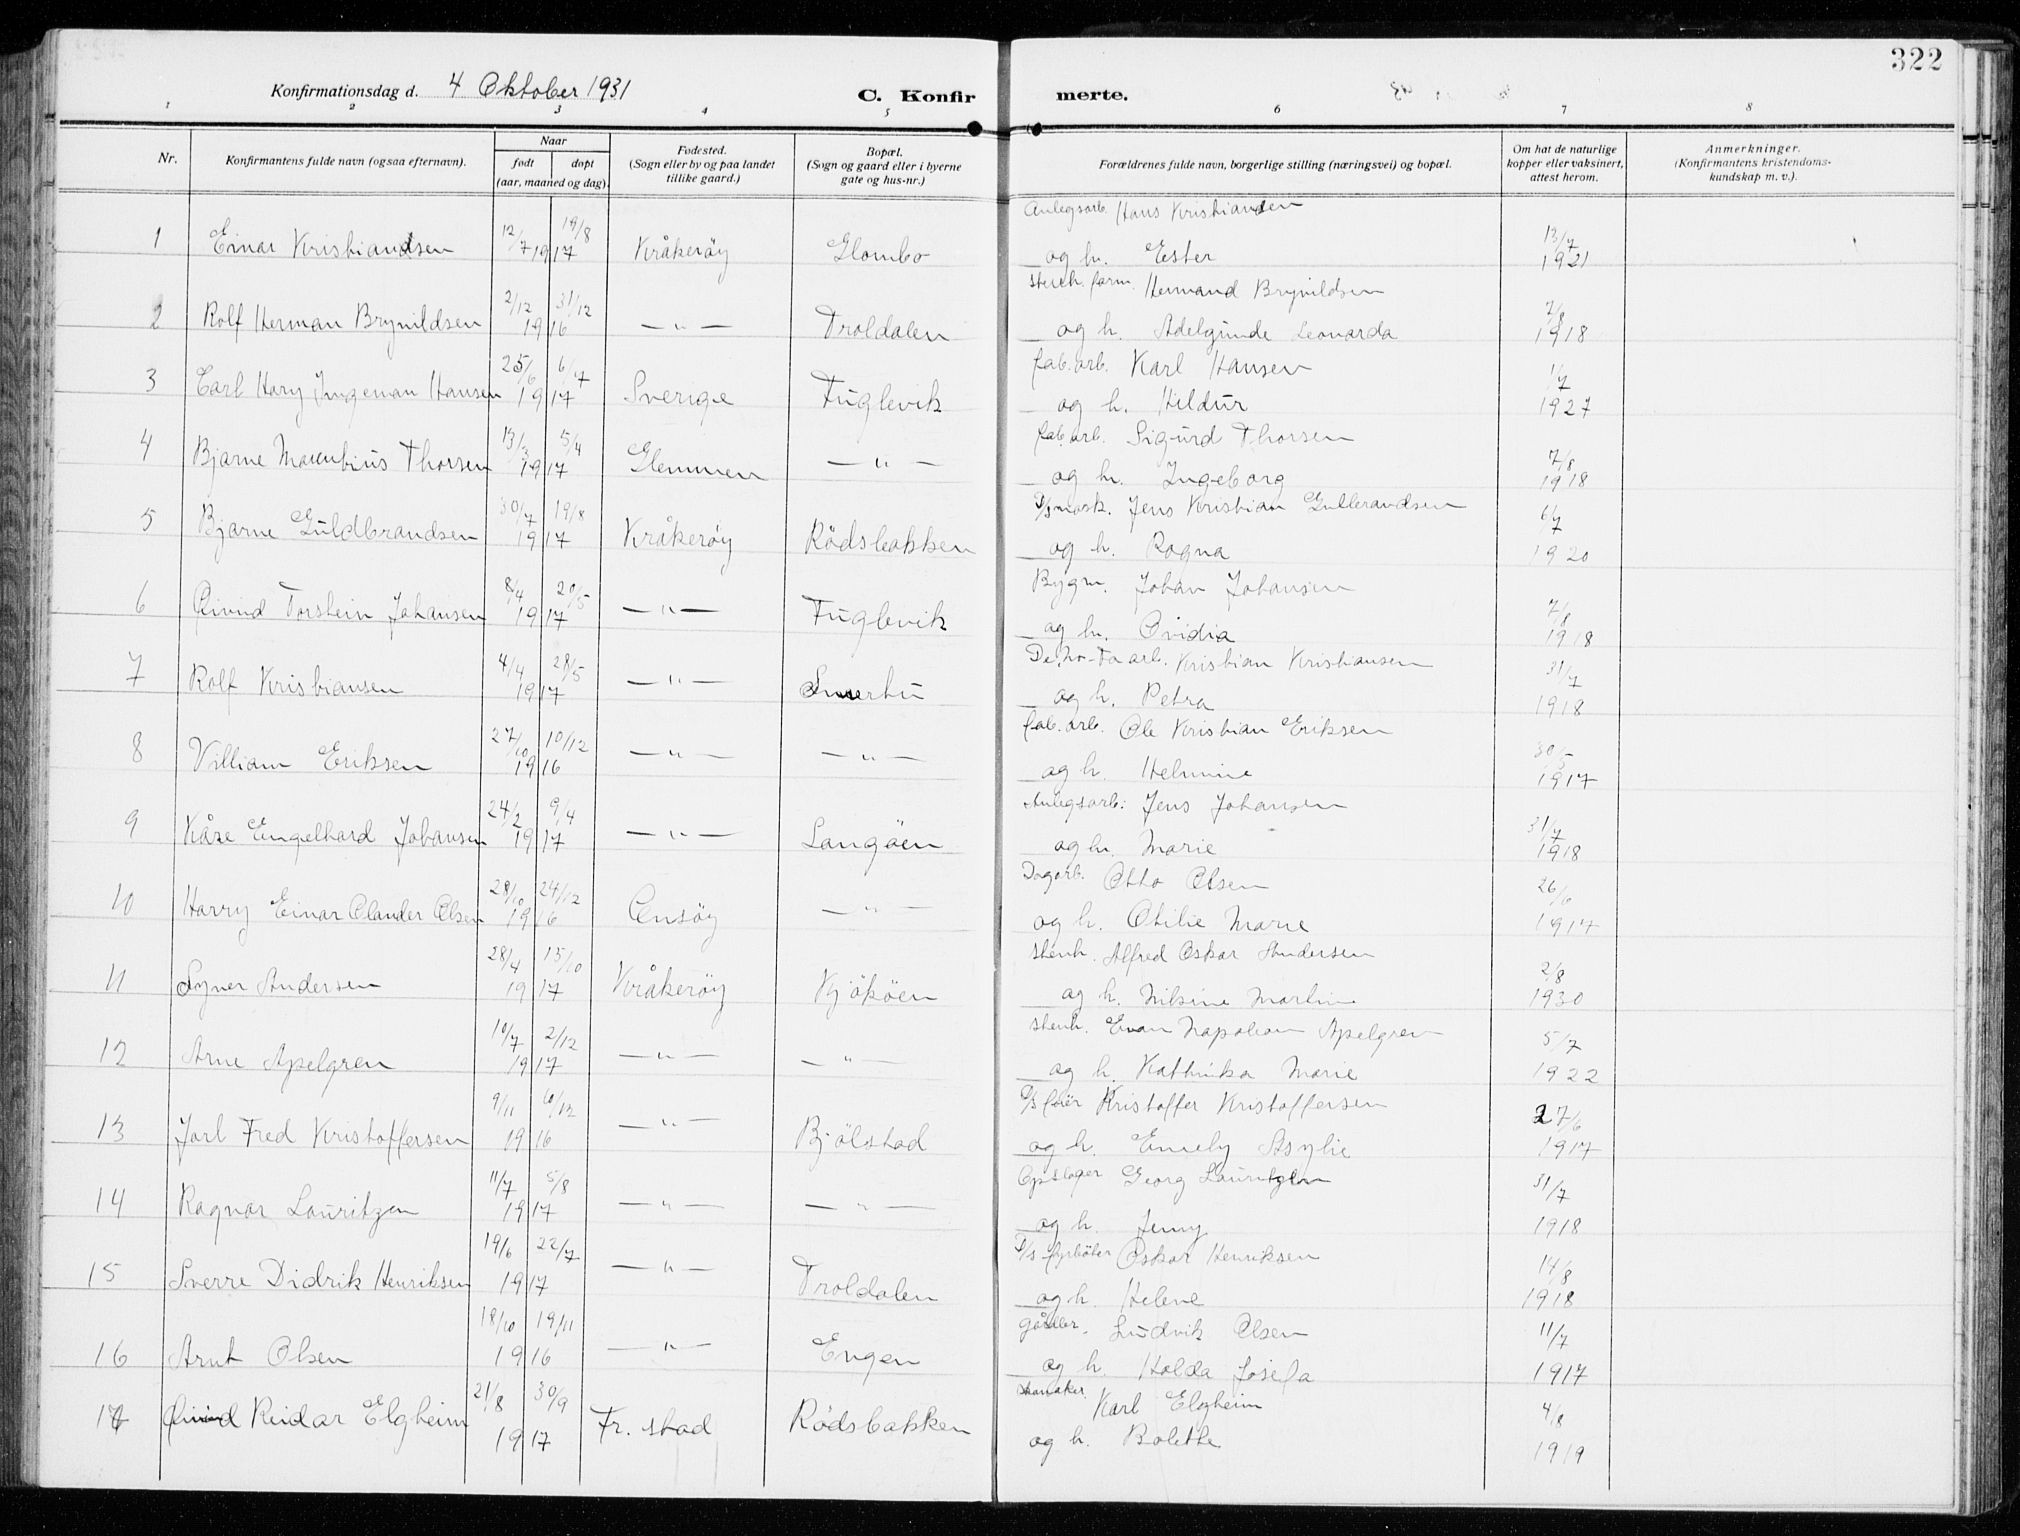 322
Konfirmationsdag d. 4 Oktober 1931 C. Konfir merte.
1 2 3 4 5 6 7 8
Nr. Konfirmantens fulde navn (ogsaa efternavn). Naar født døpt (aar, maaned og dag). Fødested. (Sogn eller by og paa landet tillike gaard.) Bopæl. (Sogn og gaard eller i byerne gate og hus-nr.) Forældrenes fulde navn, borgerlige stilling (næringsvei) og bopæl. Om hat de naturlige kopper eller vaksinert, attest herom. Anmerkninger. (Konfirmantens kristendomskundskap m. v.).
Anlegsarb. Hans Kristiansen
1 Einar Kristiansen 12/7 19/8 1917 Kråkerøy Glombo og h. Ester 13/7 1921
Stenh. form. Hermand Brynildsen
2 Rolf Herman Brynildsen 2/12 31/12 1916 —"— Troldalen og h. Adelgunde Leonarda 7/8 1918
fab. arb. Karl Hansen
3 Carl Hary Ingeman Hansen 25/6 6/7 1917 Sverige Fuglevik og h. Hildur 1/7 1927
fab. arb. Sigurd Thorsen
4 Bjarne Thorsen 13/3 5/4 1917 Glemmen —"— og h. Ingeborg 7/8 1918
Jens Kristian Gulbrandsen
5 Bjarne Guldbrandsen 30/7 19/8 1917 Kråkerøy Rødsbakken og h. Ragna 6/7 1920
Bygm. Johan Johansen
6 Øivind Torstein Johansen 8/4 20/5 1917 —"— Fuglevik og h. Ovidia 7/8 1918
De-No-Fa arb. Kristian Kristiansen
7 Rolf Kristiansen 4/4 28/5 1917 —"— Smertu og h. Petra 31/7 1918
fab. arb. Ole Kristian Eriksen
8 Villiam Eriksen 27/10 10/12 1916 —"— —"— og h. Helmine 30/5 1917
Anlegsarb. Jens Johansen
9 Kåre Engelhard Johansen 24/2 9/4 1917 —"— Langøen og h. Marie 31/7 1918
Dagarb. Otto Olsen
10 Harry Einar Olander Olsen 28/10 24/12 1916 Onsøy —"— og h. Otilie Marie 26/6 1917
Stenh. Alfred Oskar Andersen
11 Syner Andersen 28/4 15/10 1917 Kråkerøy Kjøkøen og h. Nilsine Martine 2/8 1930
Stenh. Evan Napoleon Apelgren
12 Arne Apelgren 10/7 2/12 1917 —"— —"— og h. Kathinka Marie 5/7 1922
Kristoffer Kristoffersen
13 Jarl Fred Kristoffersen 9/11 10/12 1916 —"— Bjølstad og h. Emely Asylie 27/6 1917
Georg Lauritzen
14 Ragnar Lauritzen 11/7 5/8 1917 —"— —"— og h. Jenny 31/7 1918
D/s fyrbøter Oskar Henriksen
15 Sverre Didrik Henriksen 19/6 22/7 1917 —"— Troldalen og h. Helene 14/8 1918
Ludvik Olsen
16 Arnt Olsen 18/10 19/11 1916 —"— Engen og h. Halda Josefa 11/7 1917
Karl Elgheim
17 Øivind Reidar Elgheim 21/8 30/9 1917 Fr. stad Rødsbakken og h. Bolette 4/8 1919